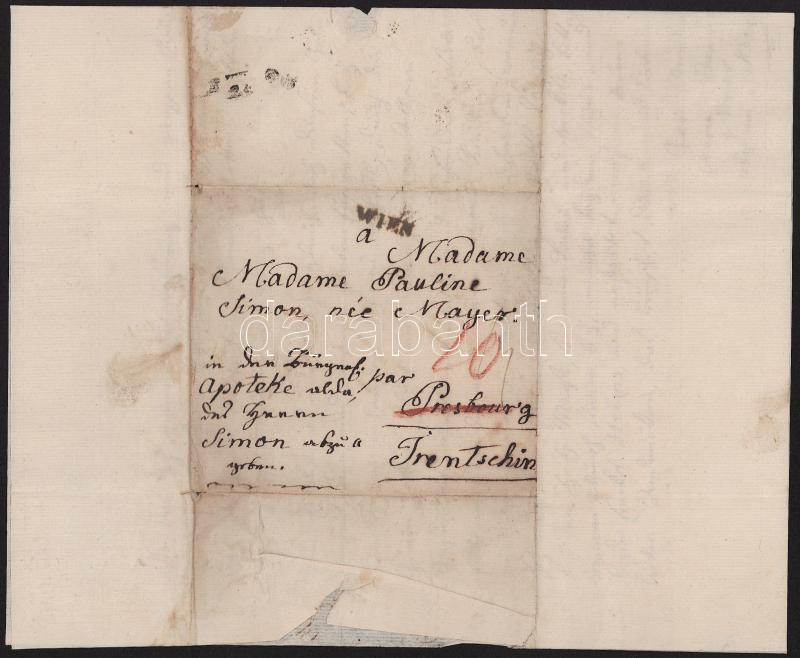 WIEN
a Madame
Madame Pauline
Simon, née Mayer.
in der
Apoteke alda,
des Herrn
Simon abzu
geben.
par
20
Presbourg
Trentschin
darabanth